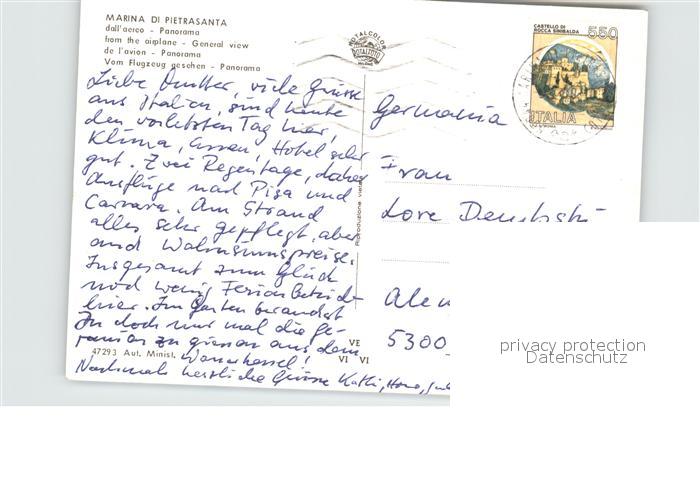 MARINA DI PIETRASANTA
dall'aereo - Panorama
from the airplane - General view
de l'avion - Panorama
Vom Flugzeug gesehen - Panorama
ROTALCOLOR
ROTALFOTO
CASTELLO DI
ROCCA SINIBALDA
550
ITALIA
Liebe Mutter, viele Grüsse
aus Italien, sind heute
den vorletzten Tag hier,
Klima, Essen, Hotel sehr
gut. Zwei Regentage, daher
Ausflüge nach Pisa und
Carrara. Am Strand
alles sehr gepflegt, aber
auch Wahnsinnspreise.
Insgesamt zum Glück
noch wenig Ferienbetrieb
hier. Im Garten
doch nur mal die Ge-
ranien zu giessen aus dem
Wasserkessel!
Nochmals herzliche Grüsse Kathi, Hans,
Germania
Frau
Lore
5300
Riproduzione
VE
VI VI
47293 Aut. Minist.
privacy protection
Datenschutz